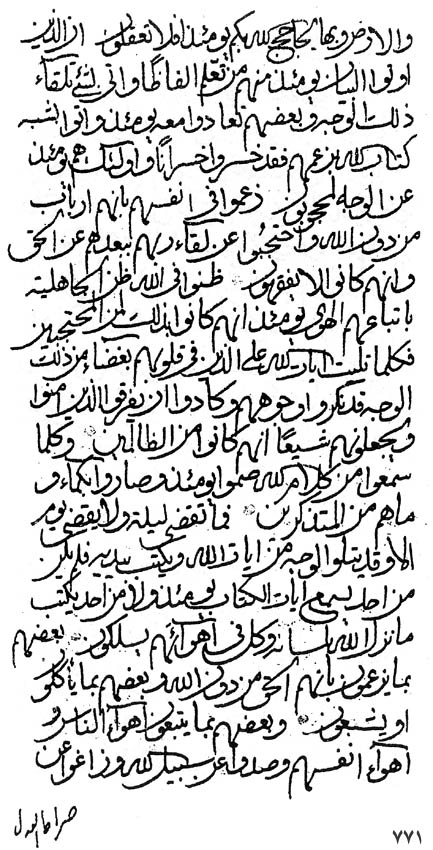 والارض وبها يحاجج الله بكم يومئذ افلا تعقلون ان الذين
اوتوا البيان يومئذ منهم من تعلم الفاظا واتى لشئ تلقاء
ذلك الوجه وبعضهم تعادوا معه يومئذ واتوا لشبه
كتاب الله بزعمهم فقد خسروا خسرانا واولئك هم يومئذ
عن الوجه لمحجبون زعموا في انفسهم بانهم ارباب
من دون الله واحتجبوا عن لقاء ربهم ببعدهم عن الحق
وانهم كانوا لا يفقهون ظنوا في الله ظن الجاهلية
باتباعهم الهوى يومئذ انهم كانوا بذلك لمن المحتجبين
فكلما تليت ايات الله على الذين في قلوبهم بغضاء من ذلك
الوجه قد نكروا وجوههم وكادوا ان يفرقوا الذين امنوا
ويجعلونهم شيعا انهم كانوا من الظالمين وكلما
سمعوا من كلام الله صموا يومئذ وصاروا بكماء و
ماهم من المتذكرين فما تقضى ليلة ولا يقضى يوم
الا وقد يتلوا الوجه من ايات الله ويكتب بيديه فلم يكن
من احد يسمع ايات الكتاب يومئذ ولا من احد يكتب
ما نزل الله بلسانه وكل في اهوائهم يسلكون بعضهم
بما يزعمون بانهم الحق من دون الله وبعضهم بما ياكلو
او يشبعون وبعضهم بما يتبعون اهواء الناس و
اهواء انفسهم وصدوا عن سبيل الله وزاغوا عن
٧٧١